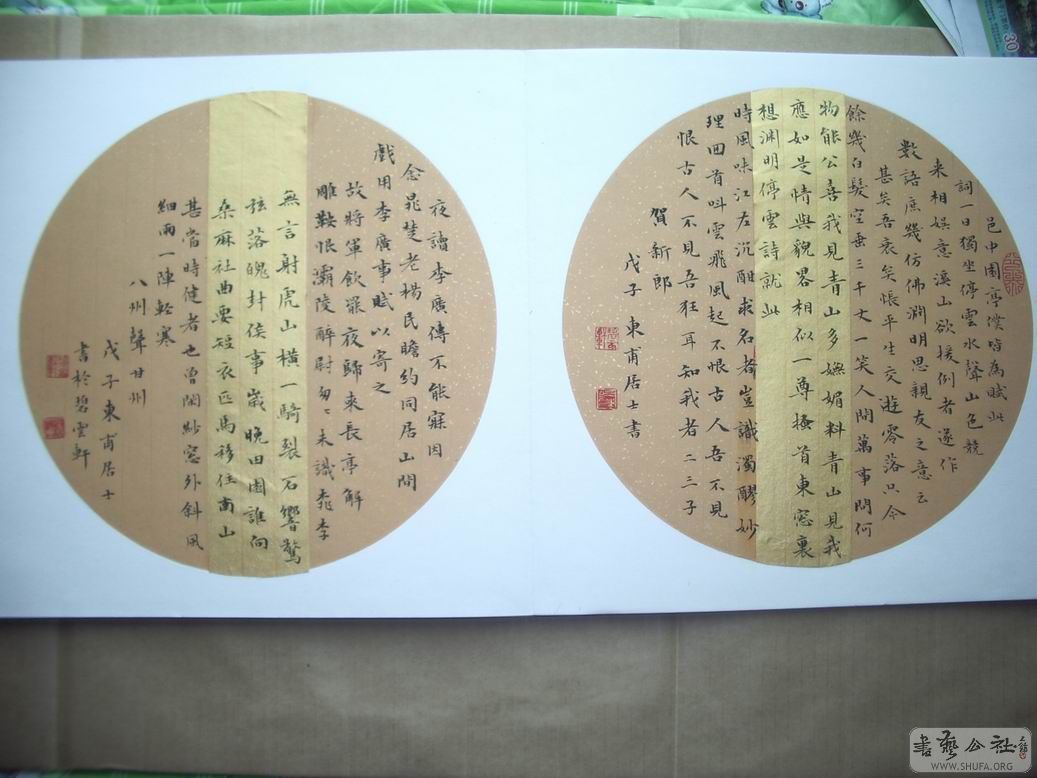 邑中園亭僕皆為賦此
詞一日獨坐停雲水聲山色競
来相娱意溪山欲援例者遂作
數語庶幾仿佛淵明思親友之意云
甚矣吾衰矣悵平生交遊零落只今
餘幾白髮空垂三千丈一笑人間萬事問何
物能公喜我見青山多嫵媚料青山見我
應如是情與貌畧相似一尊搔首東窓裏
想渊明停雲詩就此
時風味江左沉酣求名者豈識濁醪妙
理回首叫雲飛風起不恨古人吾不見
恨古人不見吾狂耳知我者二三子
賀新郎
戊子東甫居士書
夜讀李廣傳不能寐因
念晁楚老楊民瞻約同居山間
戲用李廣事賦以寄之
故將軍飲罷夜歸來長亭解
雕鞍恨灞陵醉尉匆〻未識桃李
無言射虎山橫一騎裂石響驚
弦落魄封侯事歲晚田園誰向
桑麻社曲要短衣匹馬移住南山
甚當時健者也曾閑紗窓外斜風
細雨一陣輕寒
八州聲甘州
戊子東甫居士
書於碧雲軒
30
書藝公社
WWW.SHUFA.ORG